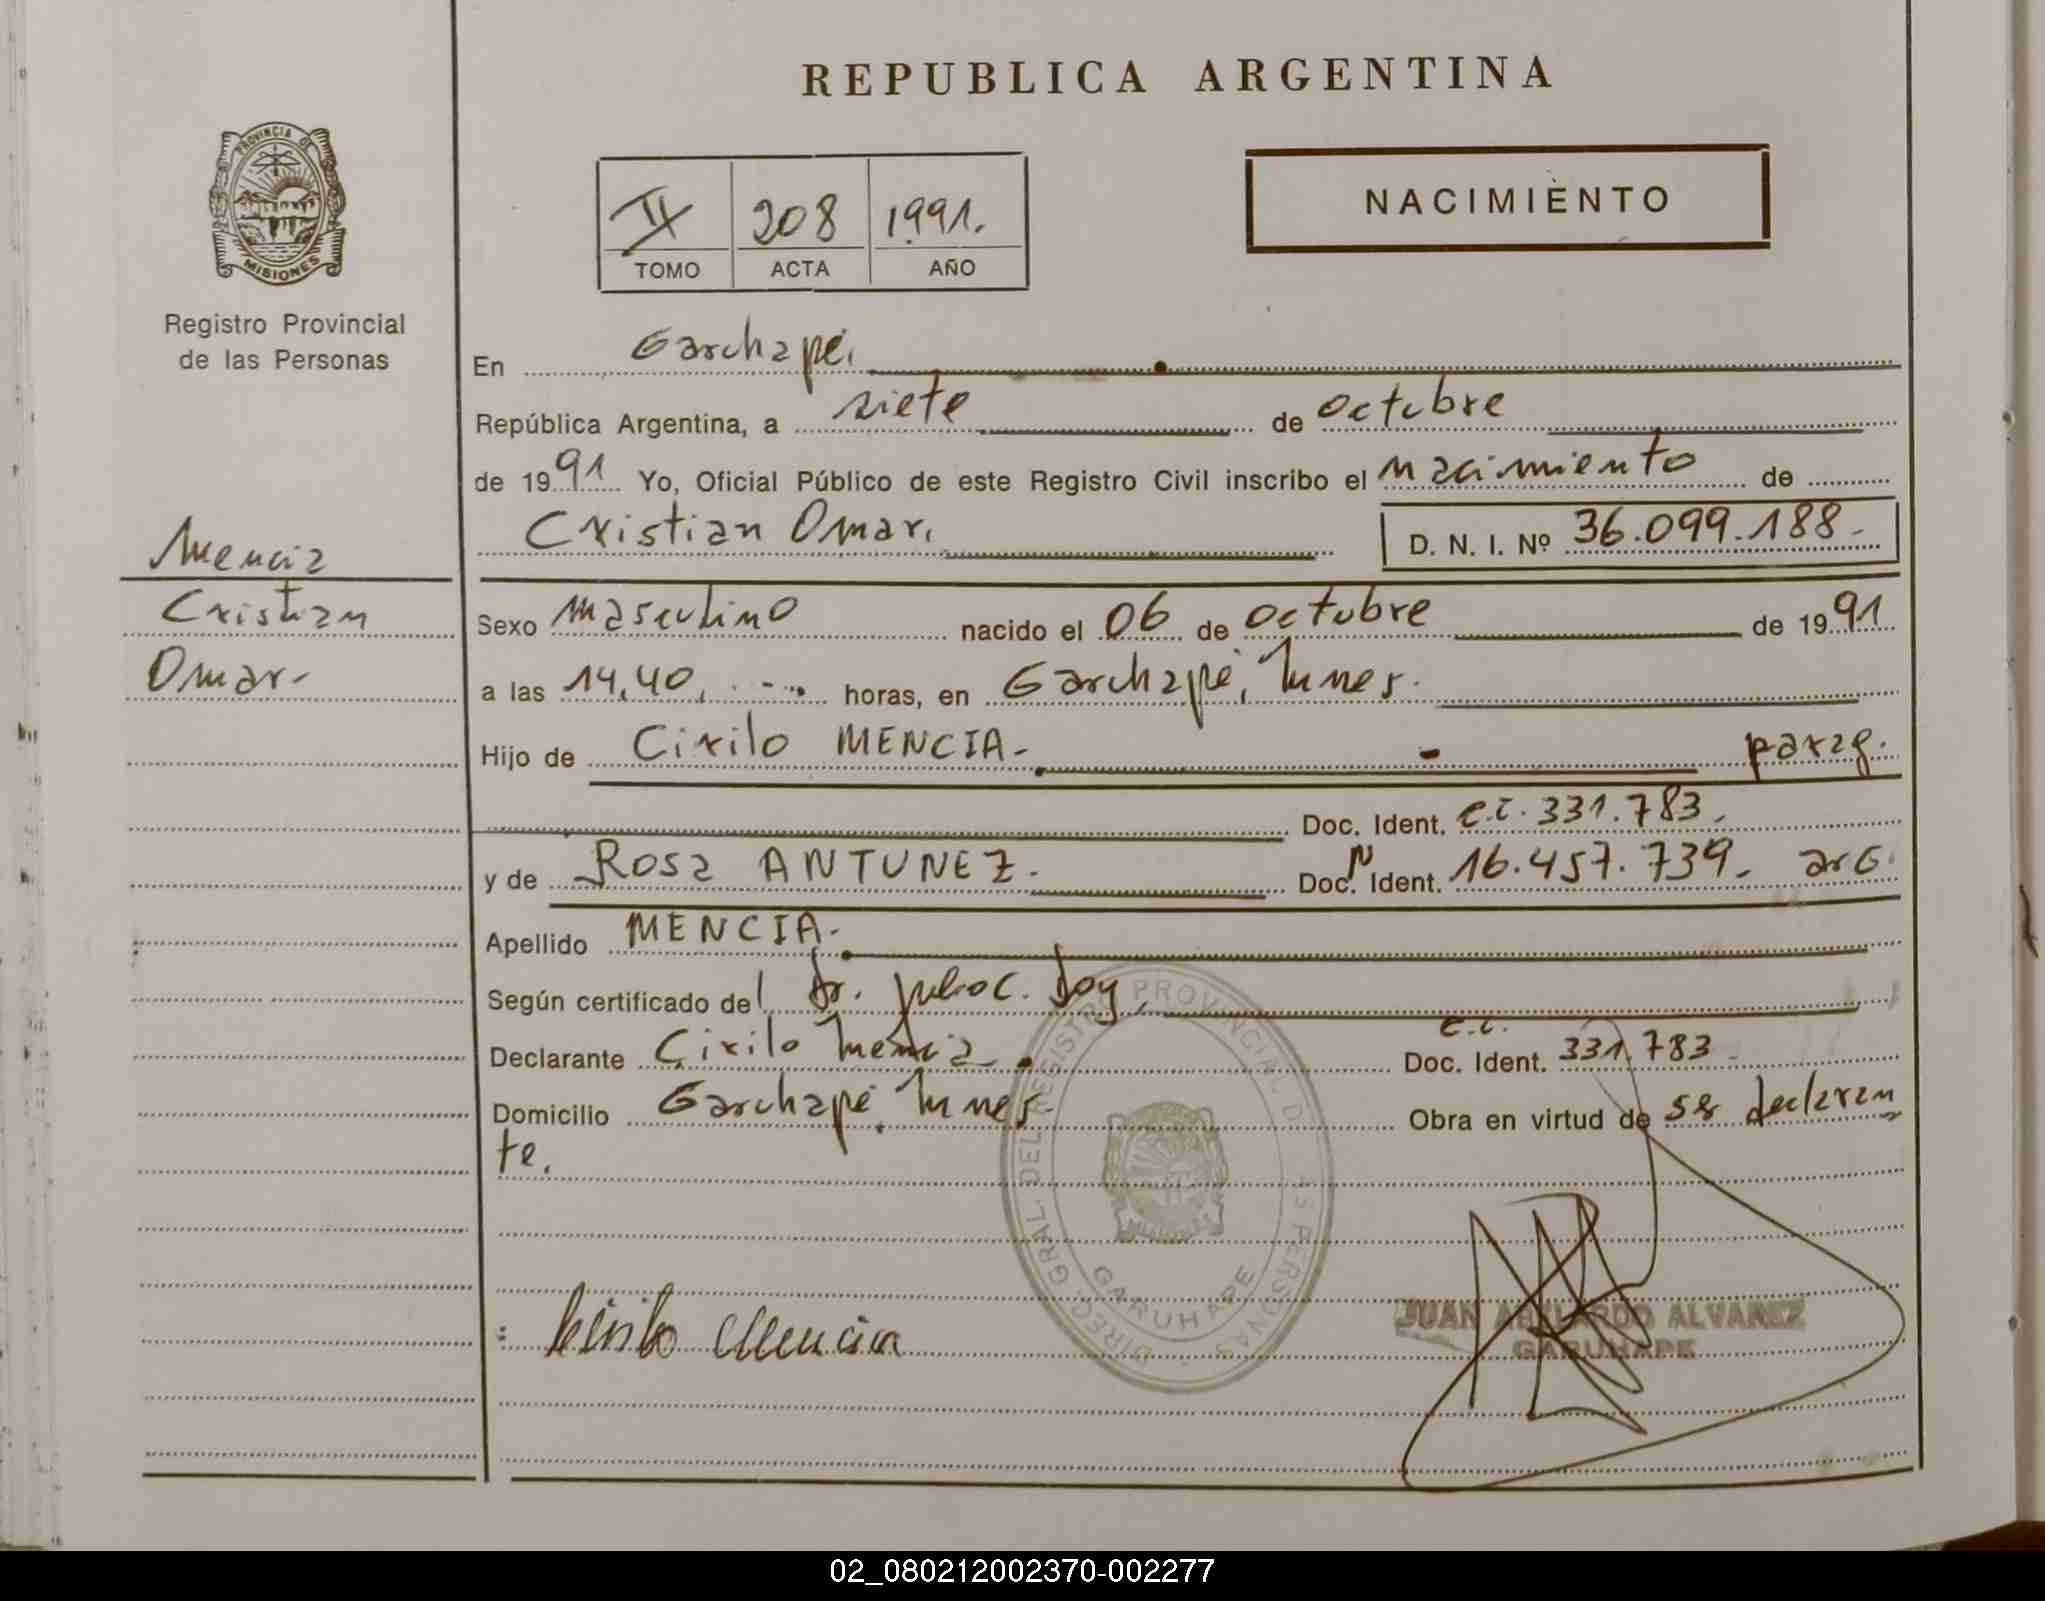 REPUBLICA ARGENTINA
PROVINCIA DE
MISIONES
Registro Provincial
de las Personas
II 208 1991.
TOMO ACTA AÑO
NACIMIENTO
En Garuhapé.
República Argentina, a siete de octubre
de 1991 Yo, Oficial Público de este Registro Civil inscribo el nacimiento de
Cristian Omar.
D. N. I. Nº 36.099.188-
Mencia
Cristian
Omar-
Sexo masculino nacido el 06 de octubre de 1991
a las 14,40, horas, en Garuhapé, Mnes.
Hijo de Cirilo MENCIA- parag.
Doc. Ident. c.i. 331.783,
y de ROSa ANTUNEZ. Doc. N Ident. 16.457.739, arG.
Apellido MENCIA-
Según certificado del Dr. Julio C. Doy,
Declarante Cirilo Mencia Doc. Ident. c.i. 331.783
Domicilio Garuhapé Mnes- Obra en virtud de ser declaran
te.
DIREC. GRAL. DEL REGISTRO PROVINCIAL DE LAS PERSONAS
GARUHAPE
Cirilo Mencia
JUAN ABELARDO ALVAREZ
GARUHAPE
02_080212002370-002277